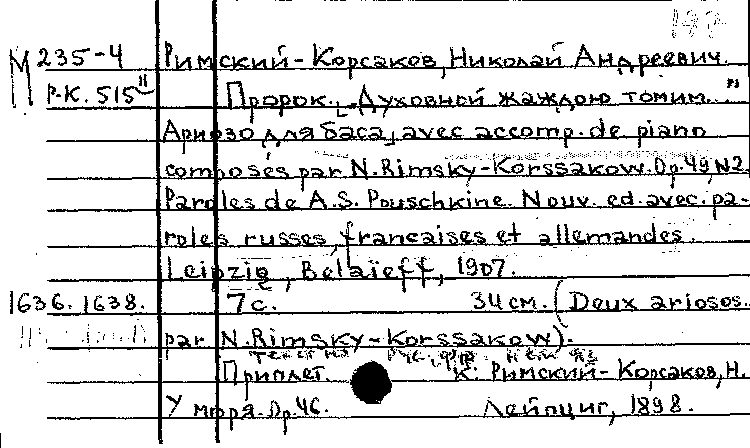 197
М 235-4 Римский-Корсаков, Николай Андреевич.
Р-К. 515 II Пророк. „Духовной жаждою томим..."
Ариозо для баса, avec accomp. de piano
composés par N. Rimsky-Korssakow. Op. 49 N2.
Paroles de A.S. Pouschkine. Nouv. ed. avec. pa-
roles russes, francaises et allemandes.
Leipzig, Belaïeff, 1907.
1636. 1638. 7 с. 34 см. (Deux ariosos.
par N. Rimsky-Korssakow).
текст на рус. фр. нем яз
Приплет. к: Римский-Корсаков, Н.
У моря. Op. 46. Лейпциг, 1898.